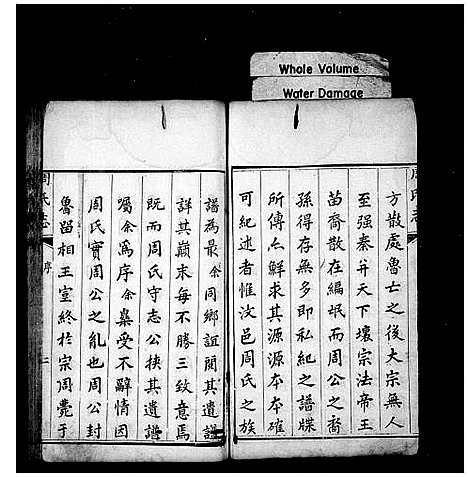 Whole Volume
Water Damage
周氏志
方散處魯亡之後大宗無人
至强秦并天下壞宗法帝王
苗裔散在編氓而周公之裔
孫得存無多即私紀之譜牒
所傳亦鮮求其源源本本確
可紀述者惟汶邑周氏之族
譜為最余同鄉誼閱其遺譜
詳其巔末每不勝三致意焉
既而周氏守志公挾其遺譜
囑余為序余曷受不辭情因
周氏實周公之亂也周公封
魯留相王室終於宗周薨于
周氏志
序
二